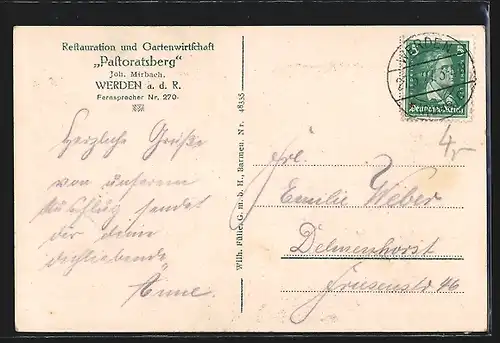 Restauration und Gartenwirtschaft
„Pastoratsberg“
Joh. Mirbach,
WERDEN a. d. R.
Fernsprecher Nr. 270.
Herzliche Grüße
von unserem
Ausflug sendet
dir deine
dichliebende
Änne.
Wilh. Fülle, G. m. b. H., Barmen. Nr. 48335
WERDEN
5 5
Deutsches Reich
4,-
Frl.
Emilie Weber
Delmenhorst
Friesenstr 46